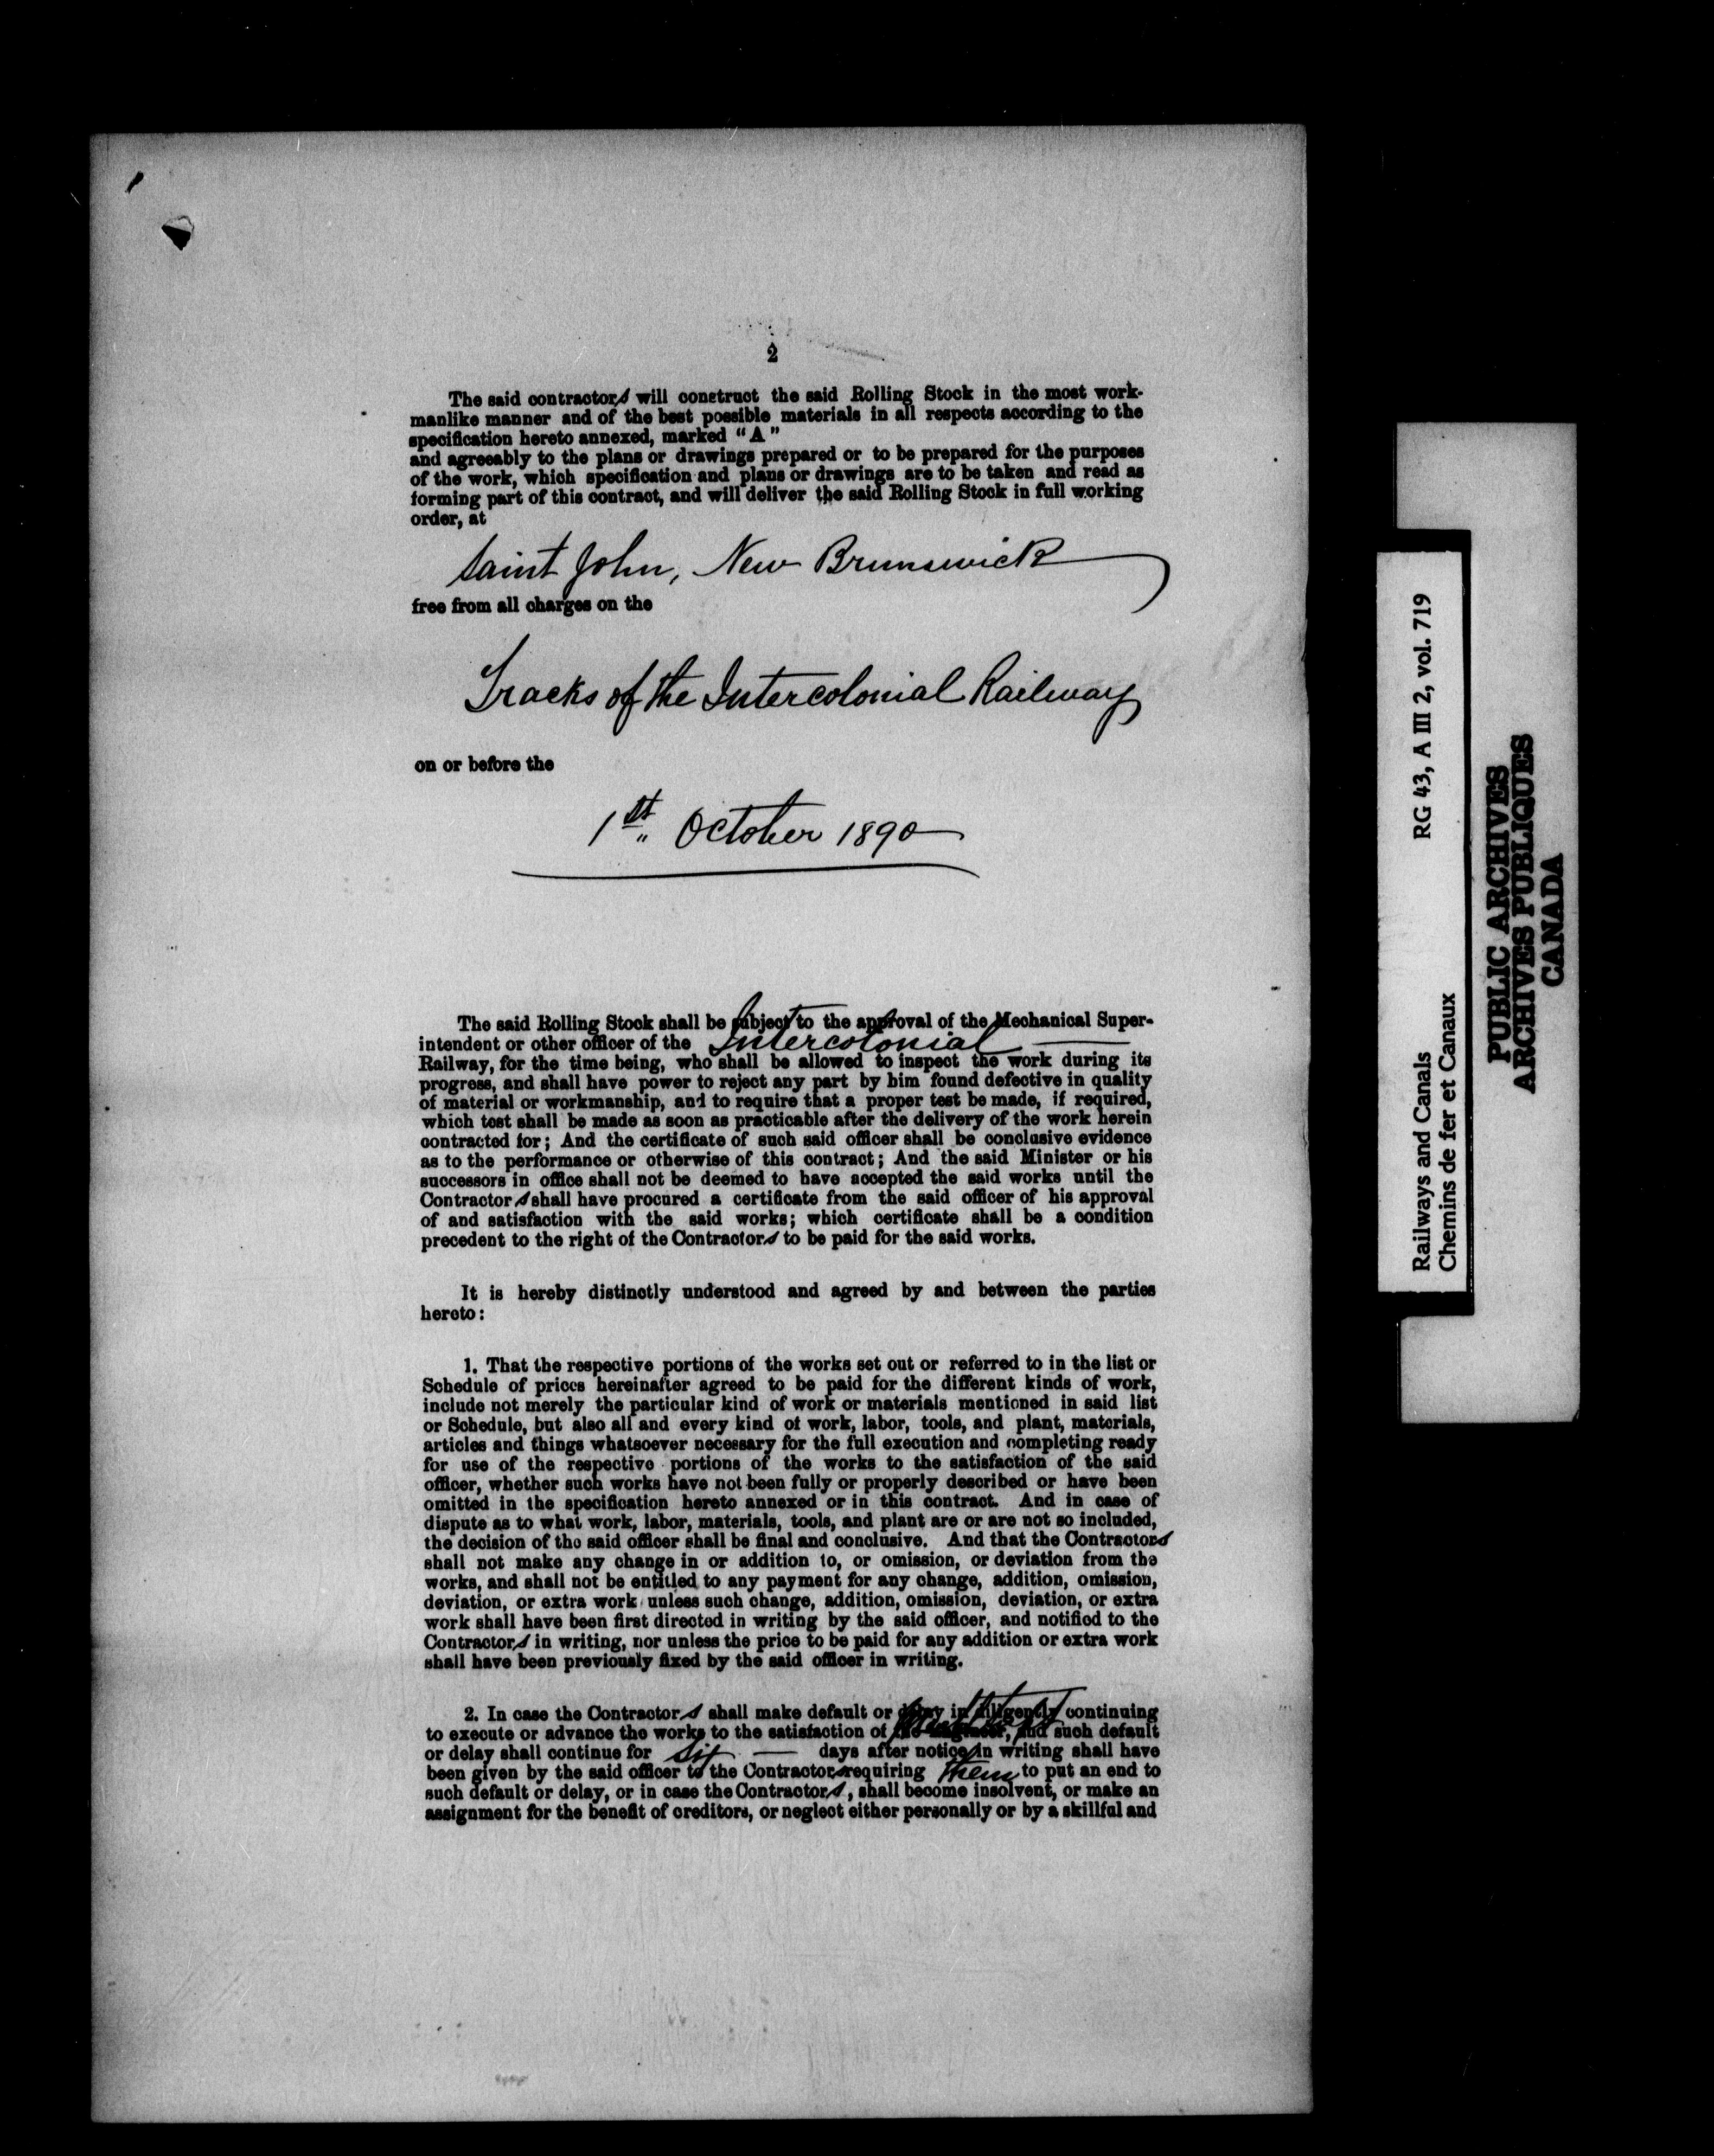 2
The said contractors will construct the said Rolling Stock in the most work-
manlike manner and of the best possible materials in all respects according to the
specification hereto annexed, marked "A"
and agreeably to the plans or drawings prepared or to be prepared for the purposes
of the work, which specification and plans or drawings are to be taken and read as
forming part of this contract, and will deliver the said Rolling Stock in full working
order, at
Saint John, New Brunswick
free from all charges on the
Tracks of the Intercolonial Railway
on or before the
1st October 1890
The said Rolling Stock shall be subject to the approval of the Mechanical Super-
intendent or other officer of the Intercolonial
Railway, for the time being, who shall be allowed to inspect the work during its
progress, and shall have power to reject any part by him found defective in quality
of material or workmanship, and to require that a proper test be made, if required,
which test shall be made as soon as practicable after the delivery of the work herein
contracted for; And the certificate of such said officer shall be conclusive evidence
as to the performance or otherwise of this contract; And the said Minister or his
successors in office shall not be deemed to have accepted the said works until the
Contractors shall have procured a certificate from the said officer of his approval
of and satisfaction with the said works; which certificate shall be a condition
precedent to the right of the Contractors to be paid for the said works.
It is hereby distinctly understood and agreed by and between the parties
hereto:
1. That the respective portions of the works set out or referred to in the list or
Schedule of prices hereinafter agreed to be paid for the different kinds of work,
include not merely the particular kind of work or materials mentioned in said list
or Schedule, but also all and every kind of work, labor, tools, and plant, materials,
articles and things whatsoever necessary for the full execution and completing ready
for use of the respective portions of the works to the satisfaction of the said
officer, whether such works have not been fully or properly described or have been
omitted in the specification hereto annexed or in this contract. And in case of
dispute as to what work, labor, materials, tools, and plant are or are not so included,
the decision of the said officer shall be final and conclusive. And that the Contractors
shall not make any change in or addition to, or omission, or deviation from the
works, and shall not be entitled to any payment for any change, addition, omission,
deviation, or extra work unless such change, addition, omission, deviation, or extra
work shall have been first directed in writing by the said officer, and notified to the
Contractors in writing, nor unless the price to be paid for any addition or extra work
shall have been previously fixed by the said officer in writing.
2. In case the Contractors shall make default or delay in diligently continuing
to execute or advance the works to the satisfaction of the Engineer, and such default
or delay shall continue for six days after notice in writing shall have
been given by the said officer to the Contractors requiring them to put an end to
such default or delay, or in case the Contractors, shall become insolvent, or make an
assignment for the benefit of creditors, or neglect either personally or by a skillful and
Railways and Canals RG 43, A III 2, vol. 719
Chemins de fer et Canaux
PUBLIC ARCHIVES
ARCHIVES PUBLIQUES
CANADA